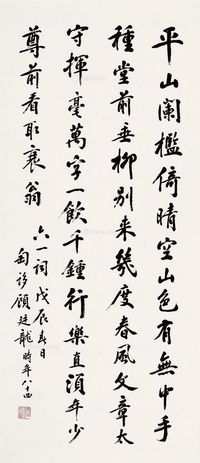 平山闌檻倚晴空山色有無中手
種堂前垂柳別来幾度春風文章太
守揮毫萬字一飲千鍾行樂直須年少
尊前看取衰翁
六一詞 戊辰春日
匋誃顧廷龍時年八十四